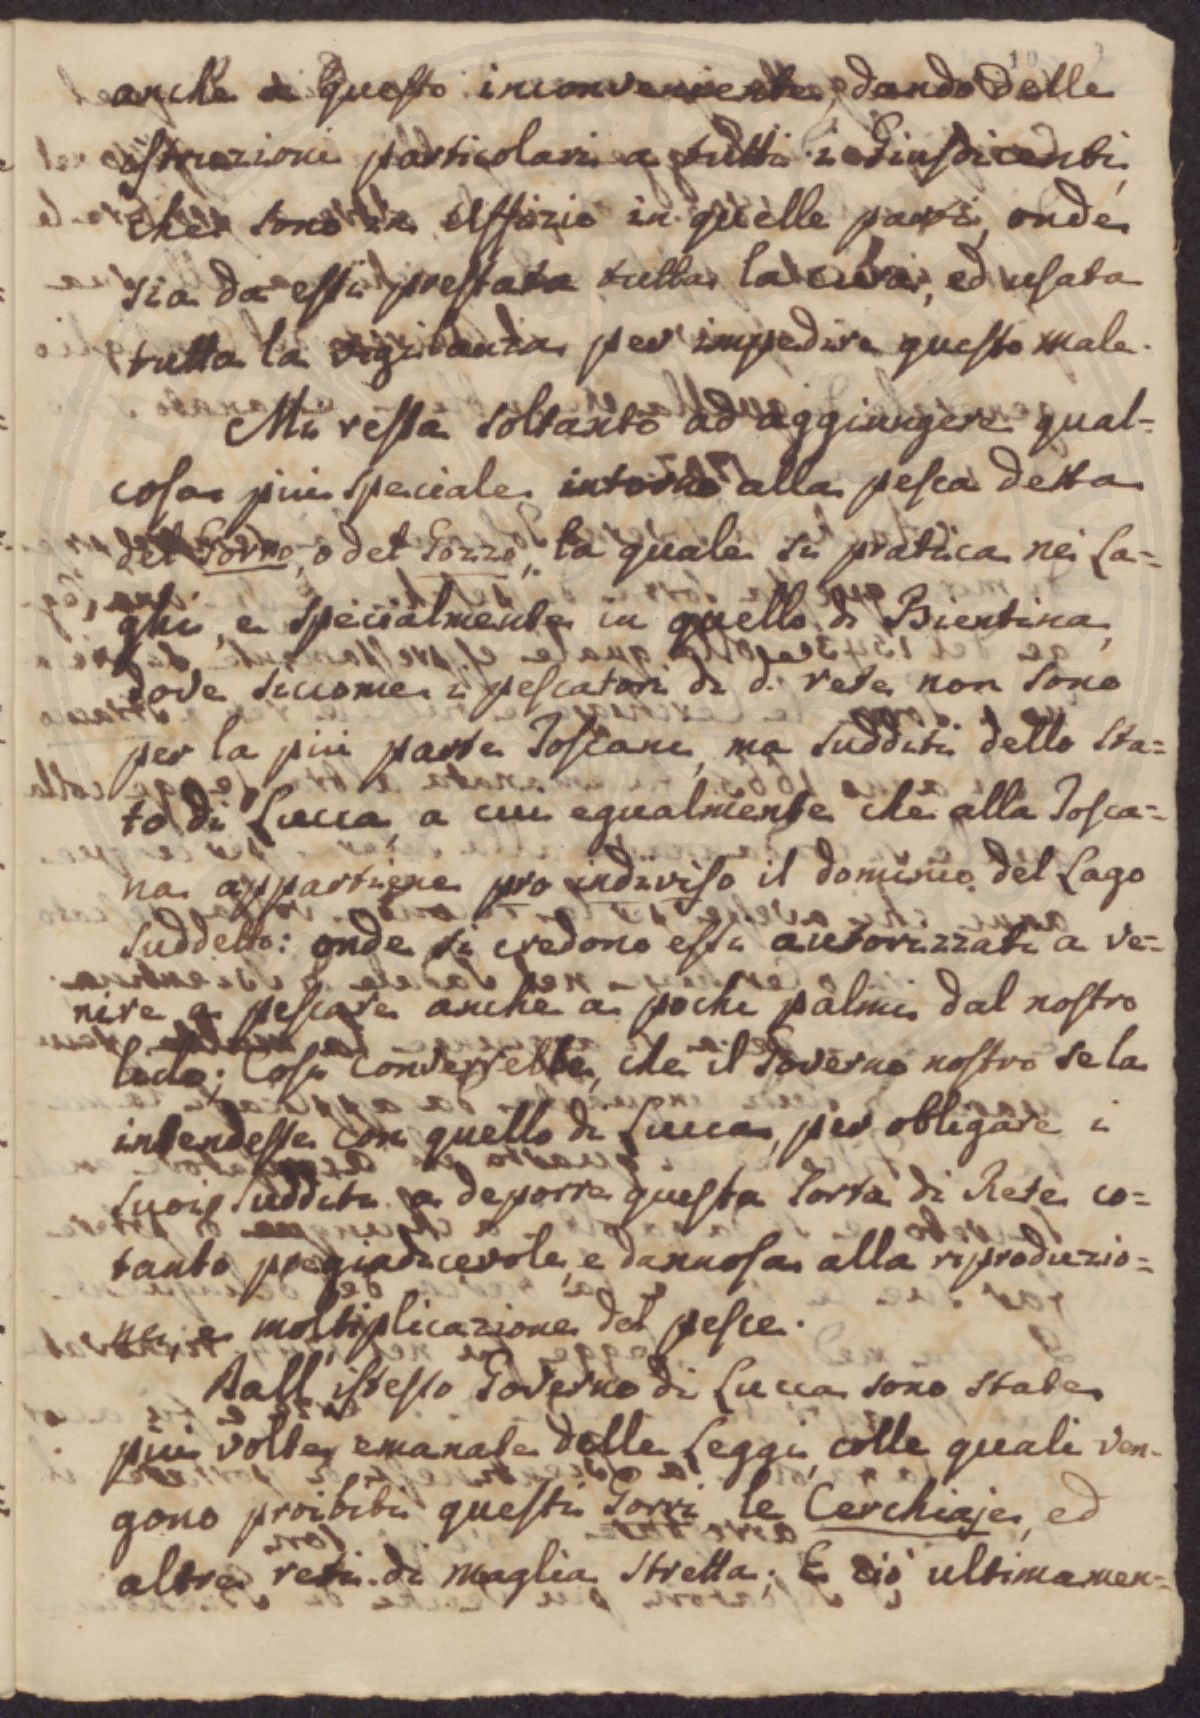 10
anche a questo inconveniente, dando delle
istruzioni particolari a tutti i Giusdicenti,
che sono in Uffizio in quelle parti, onde
sia da essi prestata tutta la cura, ed usata
tutta la vigilanza per impedire questo male.
Mi resta soltanto ad aggiungere qual=
cosa più speciale intorno alla pesca detta
del Gorro, o del Gozzo, la quale si pratica nei La=
ghi, e specialmente in quello di Bientina,
dove siccome i pescatori di d. rete non sono
per la più parte Toscani, ma sudditi dello Sta=
to di Lucca, a cui egualmente che alla Tosca=
na appartiene pro indiviso il dominio del Lago
suddetto: onde si credono essi autorizzati a ve=
nire a pescare anche a pochi palmi dal nostro
lido; Così converrebbe, che il Governo nostro se la
intendesse con quello di Lucca, per obbligare i
suoi sudditi a deporre questa sorta di Rete co=
tanto pregiudicevole, e dannosa alla riproduzio=
ne, e moltiplicazione del pesce.
Dall'istesso Governo di Lucca sono state
più volte emanate delle Leggi, colle quali ven=
gono proibiti questi Gorri, le Cerchiaje, ed
altre reti di maglia stretta; E ciò ultimamen=